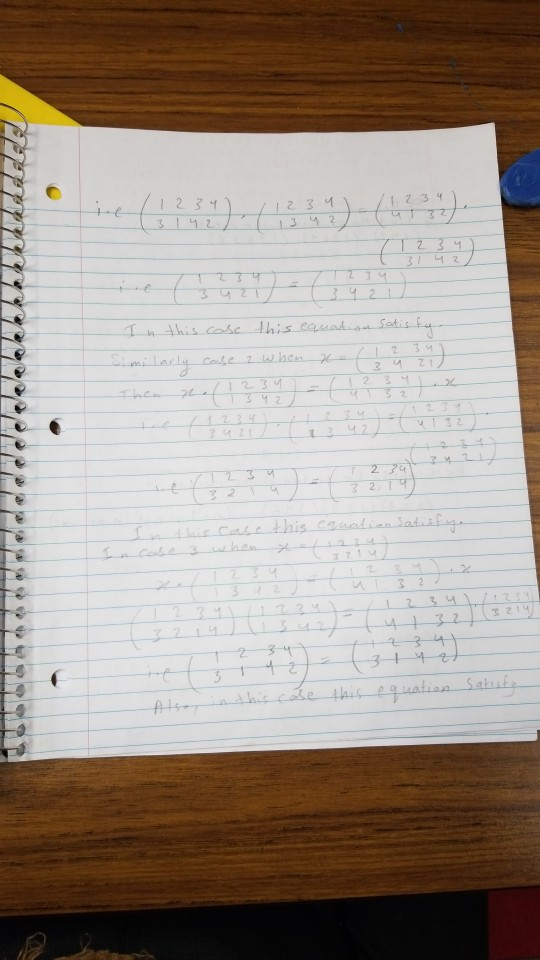 i.e (1 2 3 4 / 3 1 4 2) . (1 2 3 4 / 1 3 4 2) = (1 2 3 4 / 4 1 3 2) .
(1 2 3 4 / 3 1 4 2)
i.e (1 2 3 4 / 3 4 2 1) = (1 2 3 4 / 3 4 2 1)
In this case this equation satisfy.
Similarly case 2 when x = (1 2 3 4 / 3 4 2 1)
Then x . (1 2 3 4 / 1 3 4 2) = (1 2 3 4 / 4 1 3 2) . x
i.e (1 2 3 4 / 3 4 2 1) . (1 2 3 4 / 1 3 4 2) = (1 2 3 4 / 4 1 3 2) .
(1 2 3 4 / 3 4 2 1)
i.e (1 2 3 4 / 3 2 1 4) = (1 2 3 4 / 3 2 1 4)
In this case this equation satisfy.
In case 3 when x = (1 2 3 4 / 3 2 1 4)
x . (1 2 3 4 / 1 3 4 2) = (1 2 3 4 / 4 1 3 2) . x
(1 2 3 4 / 3 2 1 4) (1 2 3 4 / 1 3 4 2) = (1 2 3 4 / 4 1 3 2) . (1 2 3 4 / 3 2 1 4)
i.e (1 2 3 4 / 3 1 4 2) = (1 2 3 4 / 3 1 4 2)
Also, in this case this equation satisfy